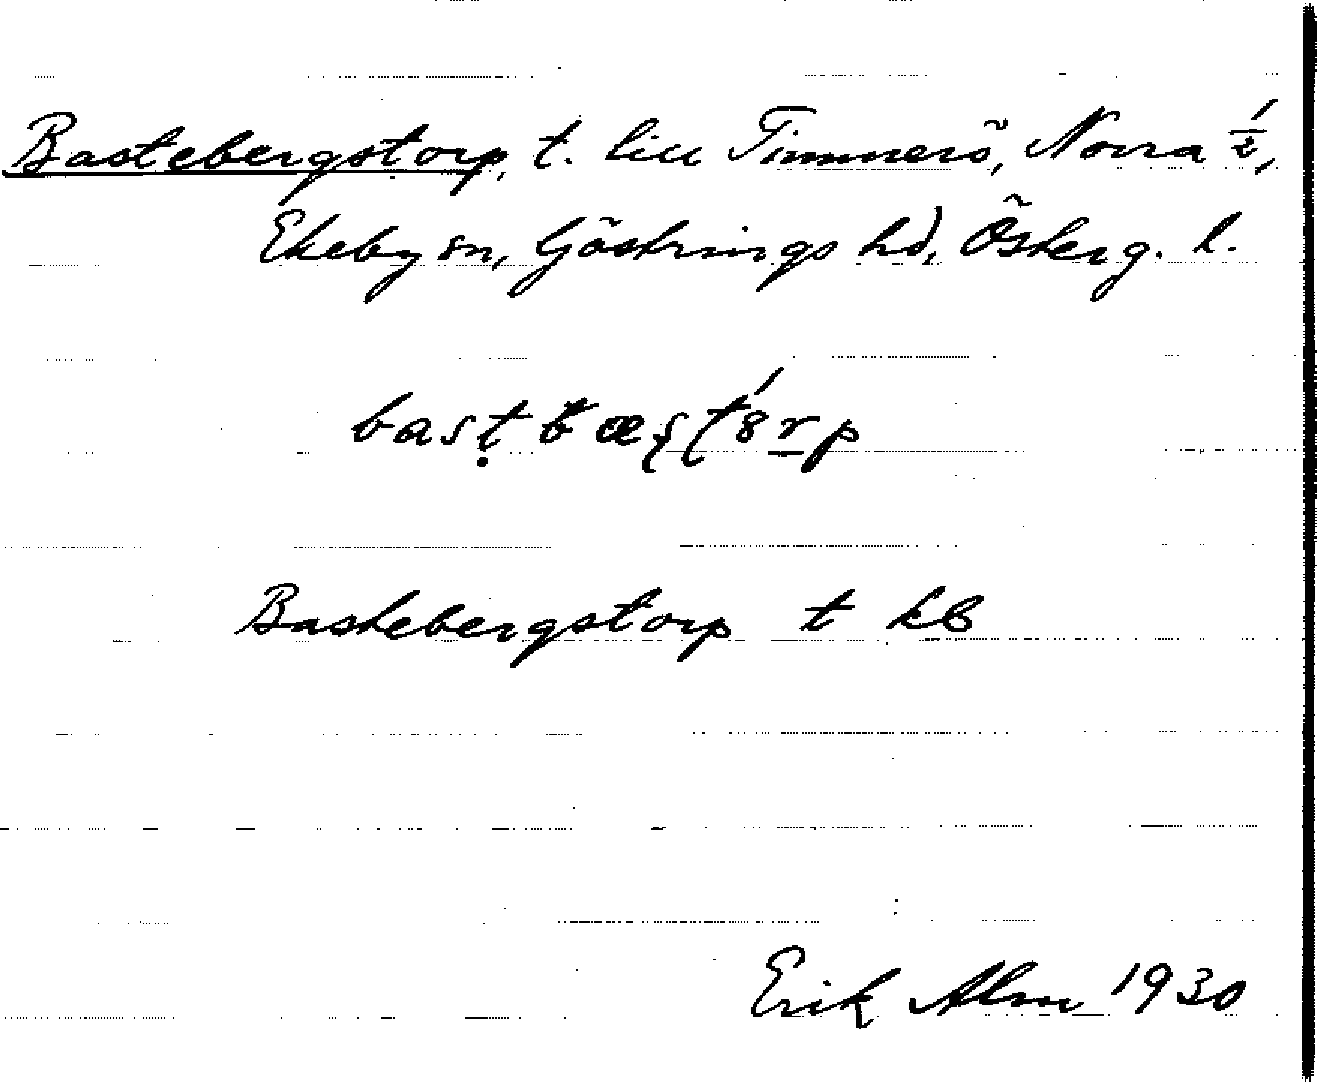 Bastebergstorp, t. till Timmerö, Norra ½,
Ekeby sn, Göstrings hd, Österg. l.
Bastebergstorp t kb
Erik Alm 1930